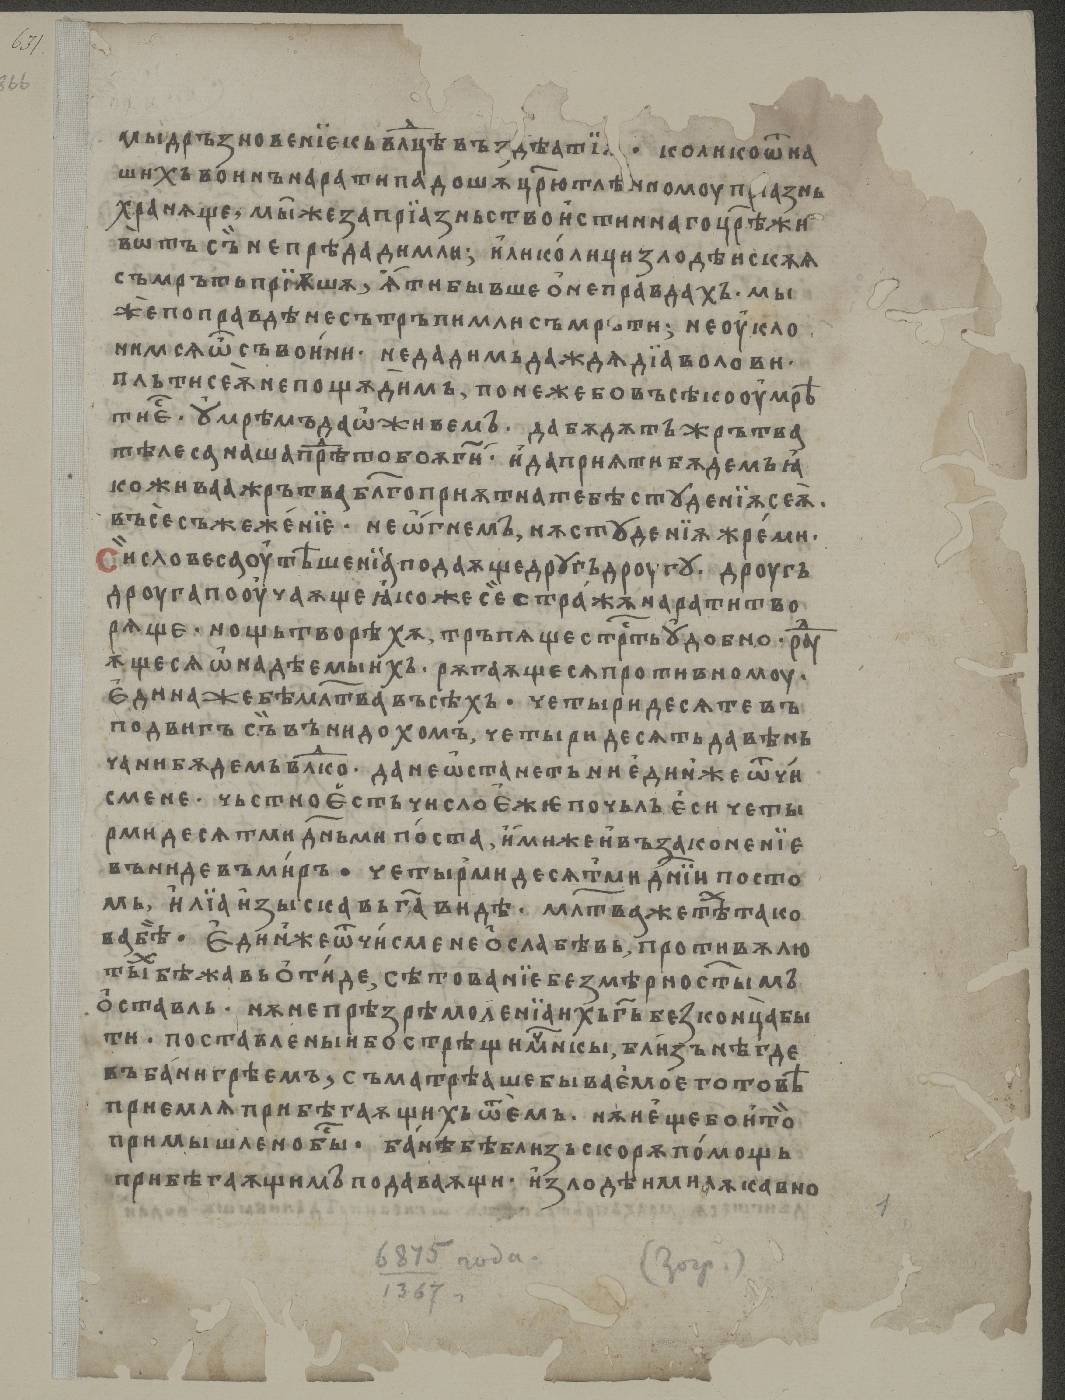 631.
866
мыдръзновенїекьвлⷣцѣвъздѣатї · коликоѿна
шихъвоинънаратипадошѫцр҃ютлѣнномоуп азнь
хранѧще, мы́жезапрїазньствои҆стиннагоцр҃ѣжи
вѡтъ съ̏ непрѣдадимли; и҆ликоли́цизлодѣискѫѫ
съмрътьпрїѫшѫ, ѧ҆тибывше ѻ҆неправдахъ · мы
же̏поправдѣнесътръпимлисъм ти; неоу҆кло
нимсѧѿсъвои́ни · недадимъдаждѫдїаволови ·
плътисеѫ̀непощѧди́мъ, понежебовъсѣкооу҆мрѣ
тиє҆ⷭ҇ · ꙋ҆мрѣмъдаѡ҆живемъ · дабѫдѫтъжрътва
тѣлесанашапрѣⷣтобоѫгⷭ҇и · и҆даприѧтибѫдемъꙗ҆
коживаажрътваблг҃оприѫтнатебѣстꙋденїѫсеѫ̀ ·
въсе̏съжеже́нїе · неѡ҆́гнемъ, нѫстꙋденїѫжре́ми ·
Си̏словесаоу҆тѣ́шенїа҆подаѫщедрꙋгъдроугꙋ · дроугъ
дроугапооу҆чаѫщеꙗ҆коже се̏ стра́жѫнаратитво
рѧще · нощьтворѣхѫ, тръпѧщестрⷭ҇тьꙋ҆добно · рⷣоу
ѫщесѧѡ҆надѣемыи́хъ · рѫгаѫщесѧпротивномоу ·
є҆́динажебѣмлт҃вавъсѣхъ · четыридесѧтевъ
подвигъ съ̏ въ̏нидохомъ, четыридесѧтьдавѣнь
чанибѫдемъвлⷣко · данеѡ҆станетъниє҆́дини́жеѿчи́
смене · чьстноє҆́стьчислоє҆́жѥпочьлъє҆́сичеты
рмидесѧтмид҃ньмипо́ста, и҆́мижеи҆възаконенїе
въниде въми́ръ · четырмидесѧ́тмид҃нїипосто
мь, и҆лїаи҆зыскавьг҃авидѣ · млт҃важетѣⷯтако
вабѣ̏ · Є҆дини́жеѿчи́сменеѻ҆слабѣвь, противѫлю
тыⷯбѣжавьѻ҆ти́де, сѣтованїебезмѣрност҃ымъ
ѻ҆ставль · нѫнепрѣзрѣмоленїаихьг҃ьбезконца̀бы
ти · поставлѐныибострѣщимⷱникы, бли́зънѣ́где
въба́нигрѣемъ, съматрѣащебываемоеготовѣ
приемлѧприбѣгаѫщихьѿ те̏мъ · нѫне҆щебои҆то̏
примышленобⷭ҇ы · ба́нѣбѣблизъскорѫпо́мощь
прибѣгаѫщимъподаваѫщи · и҆злодѣимилѫкавно
1
6875 года.
1367 г.
(Зогр.)